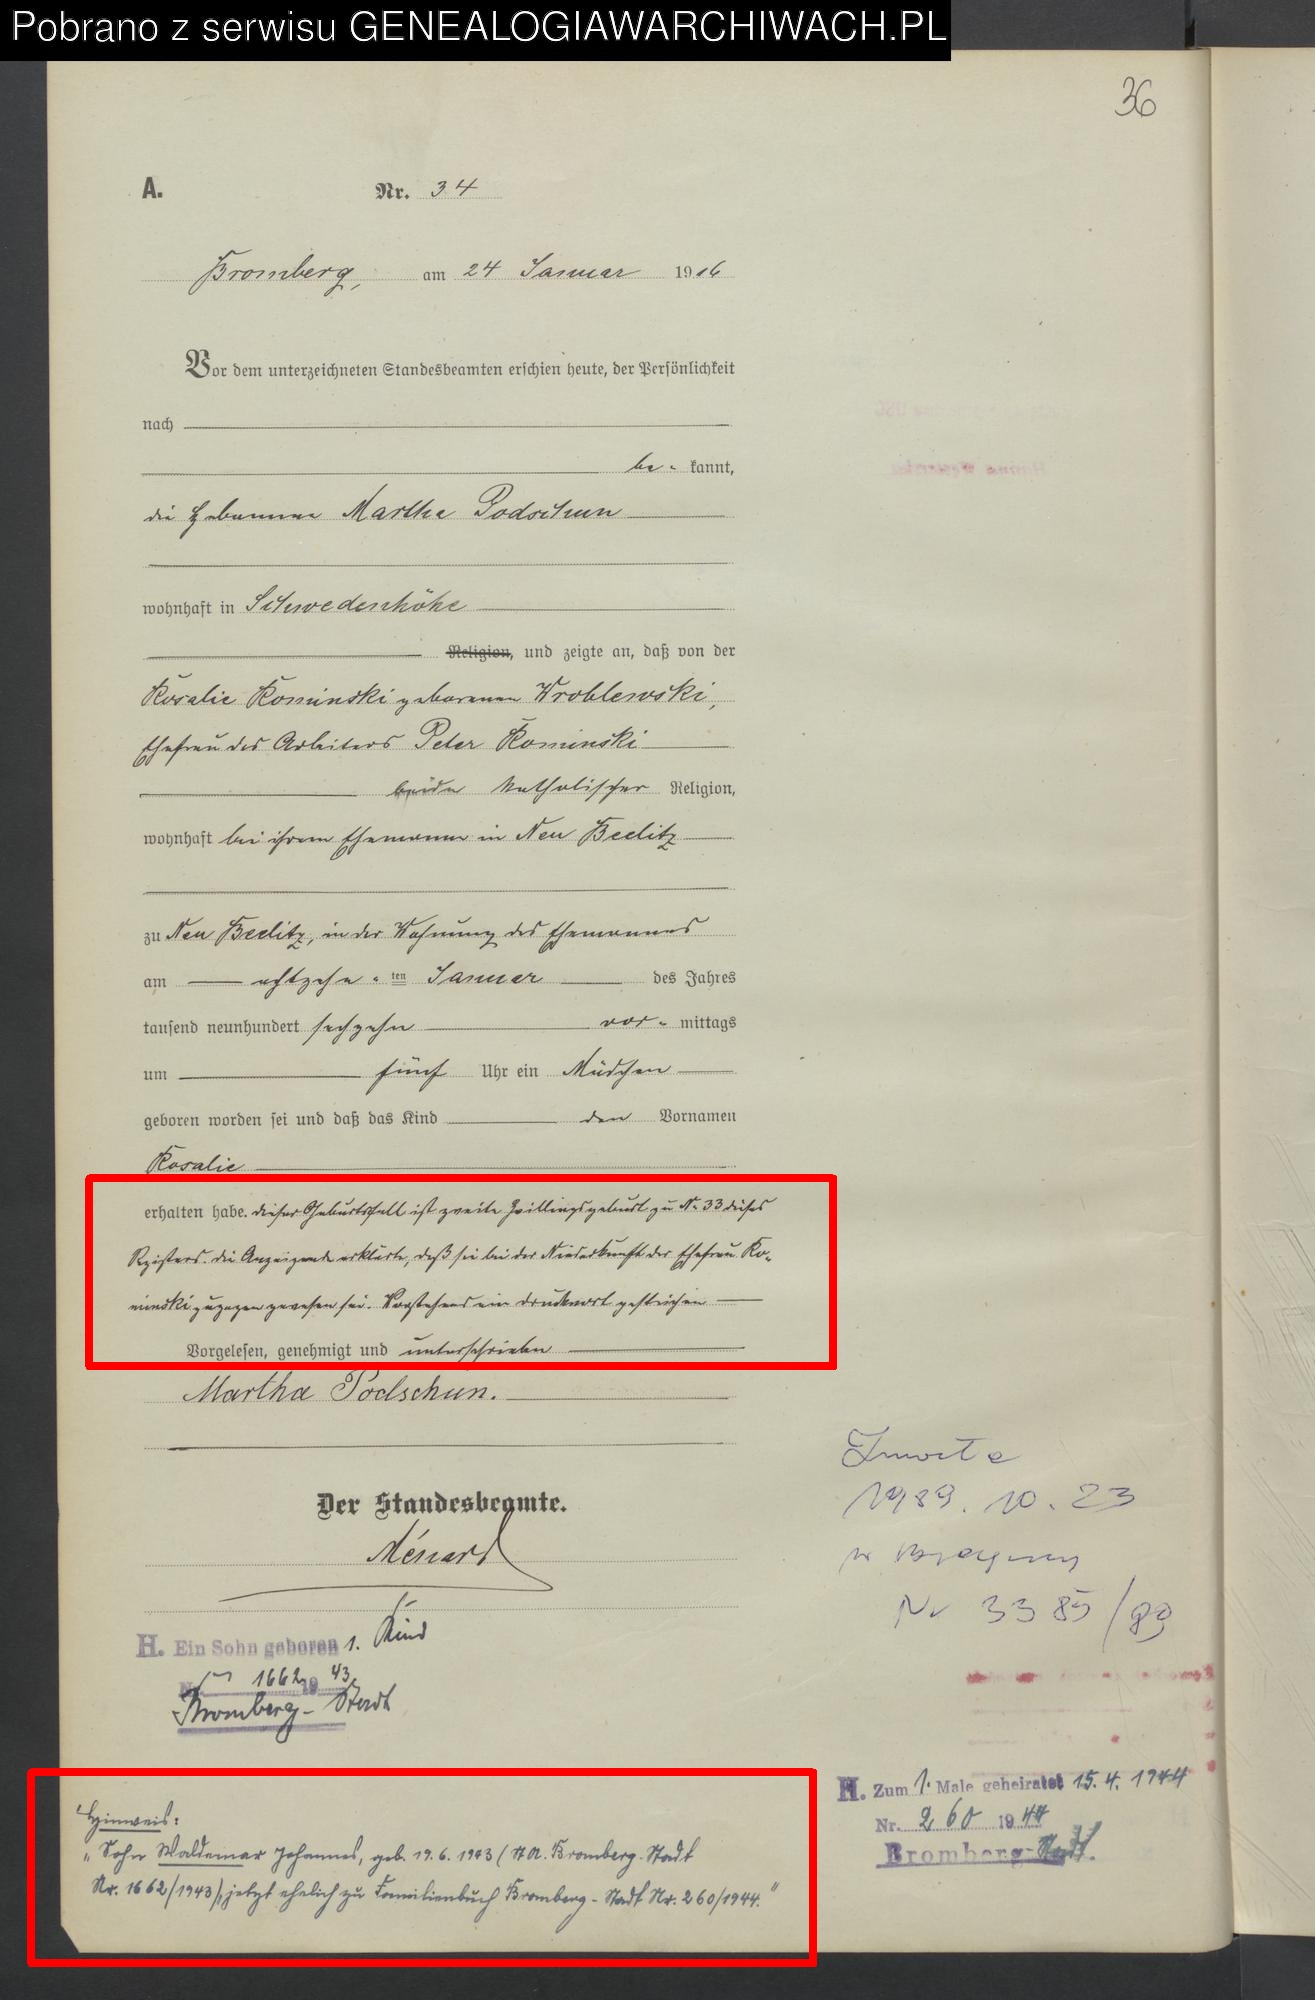 Pobrano z serwisu GENEALOGIAWARCHIWACH.PL
36
A. Nr. 34
Bromberg, am 24 Januar 1916
Vor dem unterzeichneten Standesbeamten erschien heute, der Persönlichkeit
nach
be- kannt,
die Hebamme Martha Podschun
wohnhaft in Schwedenhöhe
Religion, und zeigte an, daß von der
Rosalie Kominski geborenen Wroblewski,
Ehefrau des Arbeiters Peter Kominski
beide katholischer Religion,
wohnhaft bei ihrem Ehemanne in Neu Beelitz
zu Neu Beelitz, in der Wohnung des Ehemannes
am achtzehn- ten Januar des Jahres
tausend neunhundert sechzehn vor- mittags
um fünf Uhr ein Mädchen
geboren worden sei und daß das Kind den Vornamen
Rosalie
erhalten habe. Dieser Geburtsfall ist zweite Zwillingsgeburt zu No 33 dieses
Registers. Die Anzeigende erklärte, daß sie bei der Niederkunft der Ehefrau Ko-
minski zugegen gewesen sei. Vorstehend ein Druckwort gestrichen
Vorgelesen, genehmigt und unterschrieben
Martha Podschun.
Der Standesbeamte.
Ménard
H. Ein Sohn geboren 1. Kind
Nr. 1662 1943
Bromberg-Stadt
Zmarła
1989. 10. 23
w Bydgoszczy
Nr 3385/89
H. Zum 1. Male geheiratet 15.4.1944
Nr. 260 1944
Bromberg-Stadt.
Hinweis:
"Sohn Waldemar Johannes, geb. 19.6.1943 (St.A. Bromberg-Stadt
Nr. 1662/1943), jetzt ehelich zu Familienbuch Bromberg-Stadt Nr. 260/1944."